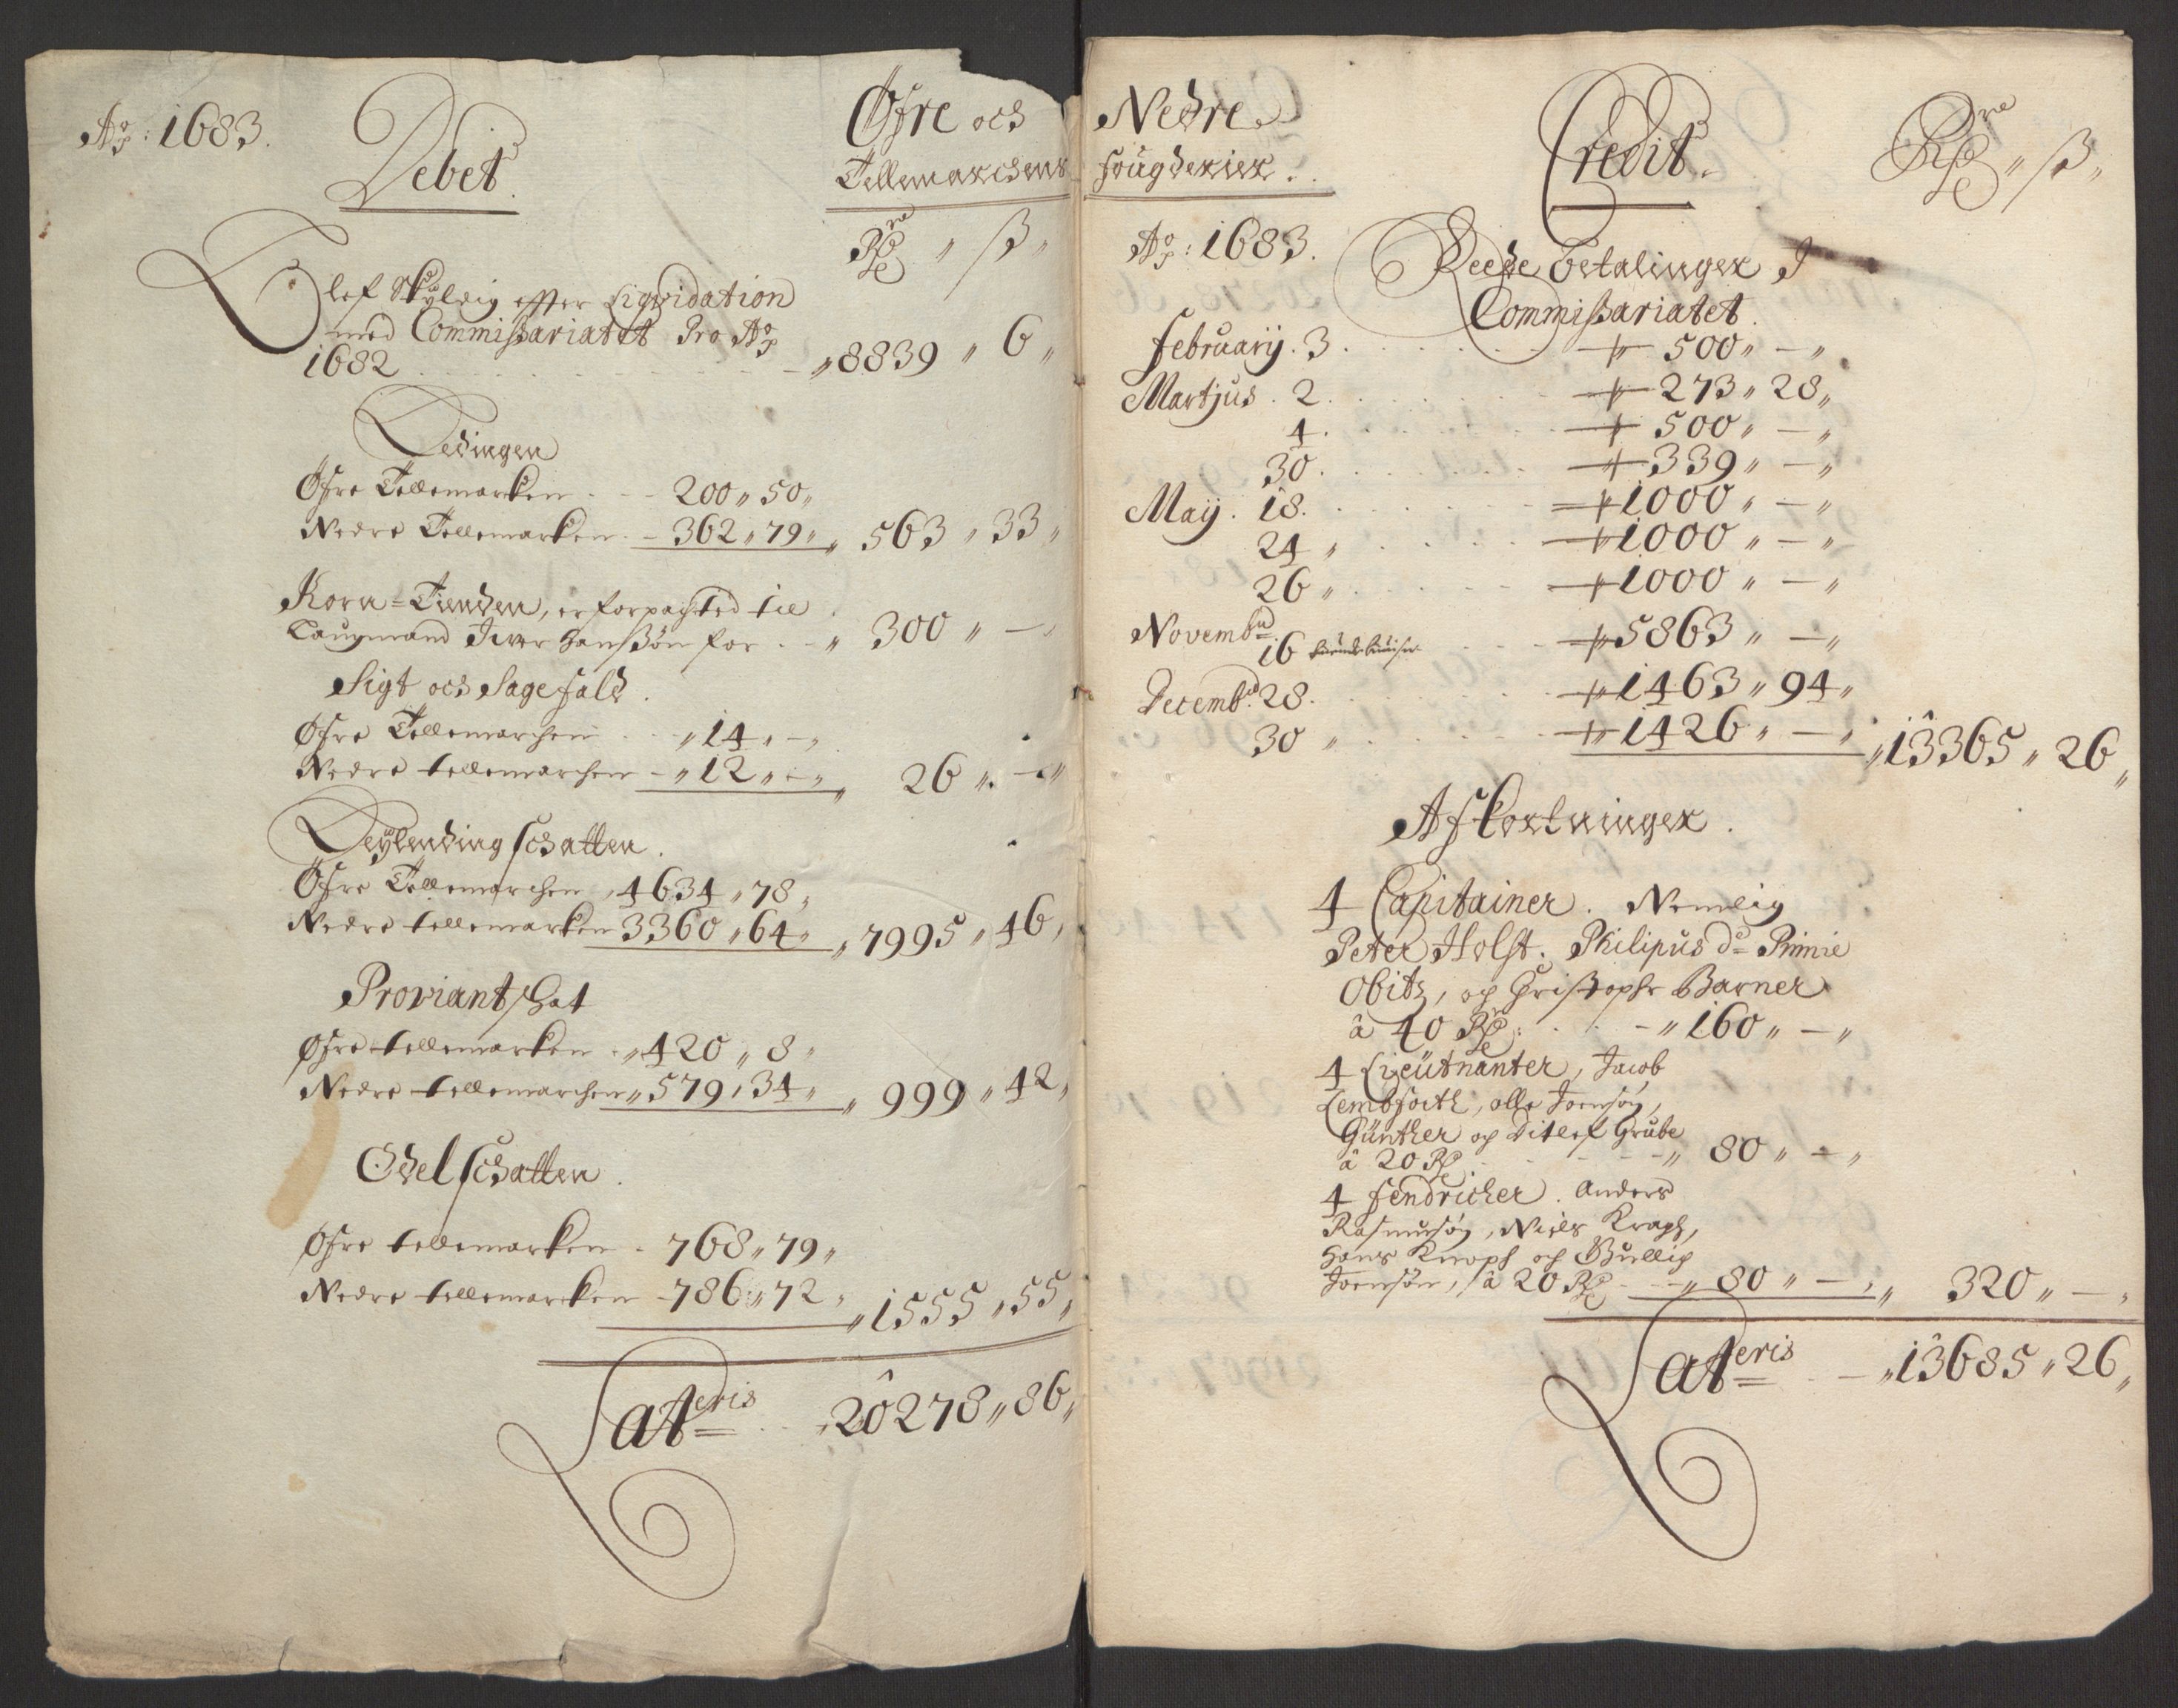 Aō: 1683.
Debet.
Øfre och
Tellemarchens
Rdr " ß "
Blef Skyldig effter Liqvidation
med Commissariatet Pro Aō
1682 . . . . . - " 8839 " 6 "
Ledingen
Øfre Tellemarken . - - 200 " 50 "
Nedre Tellemarken . - 362 " 79 " " 563 " 33 "
Korn=Tienden, er forpagted til
Laugmand Iver Hanssøn for . - " 300 " - "
Sigt och Sagefald .
Øfre Tellemarchen . . " 14 " - "
Nedre tellemarchen - " 12 " - " " 26 " - "
Leylending schatten .
Øfre Tellemarchen " 4634 " 78 "
Nedre tellemarken 3360 " 64 " " 7995 " 46 "
Proviant skat
Øfre tellemarken . " 420 " 8 "
Nedre tellemarchen " 579 " 34 " " 999 " 42 "
Odel schatten .
Øfre tellemarken . 768 " 79 "
Nedre tellemarken - 786 " 72 " " 1555 " 55 "
Lateris . . " 20278 " 86 "
Nedre
fougderier .
Credit.
Rdr " ß "
Aō: 1683.
Reede betalinger I
Commissariatet .
February . 3 . . . . . 500 " - "
Martjus . 2 . . . . . 273 " 28 "
4 . . . . . 500 " - "
30 . . . . . 339 " - "
May . 18 . . . . . 1000 " - "
24 " . . . . 1000 " - "
26 " . . . . 1000 " - "
Novemb
16 . . . 5863 " - "
Decemb. 28 . . . . . 1463 " 94 "
30 " . . . . 1426 " - " " 13365 " 26 "
Afkortninger .
4 Capitainer . Nemlig
Peter Holst . Philipus d= Prinnie
Obitz, og Christopfr Barner
à 40 Rdr : . . . - " 160 " - "
4 Lieutnanter, Jacob
Lembfort, olle Joensøn,
Günther og Ditlef Grube
à 20 Rdr . - - - - " 80 " - "
4 fendricher . Anders
Rasmusøn, Niels Kragh,
Hans Knoph og Gullig
Joensøn, à 20 Rdr - - " 80 " - " " 320 " - "
Lateris . - " 13685 " 26 "